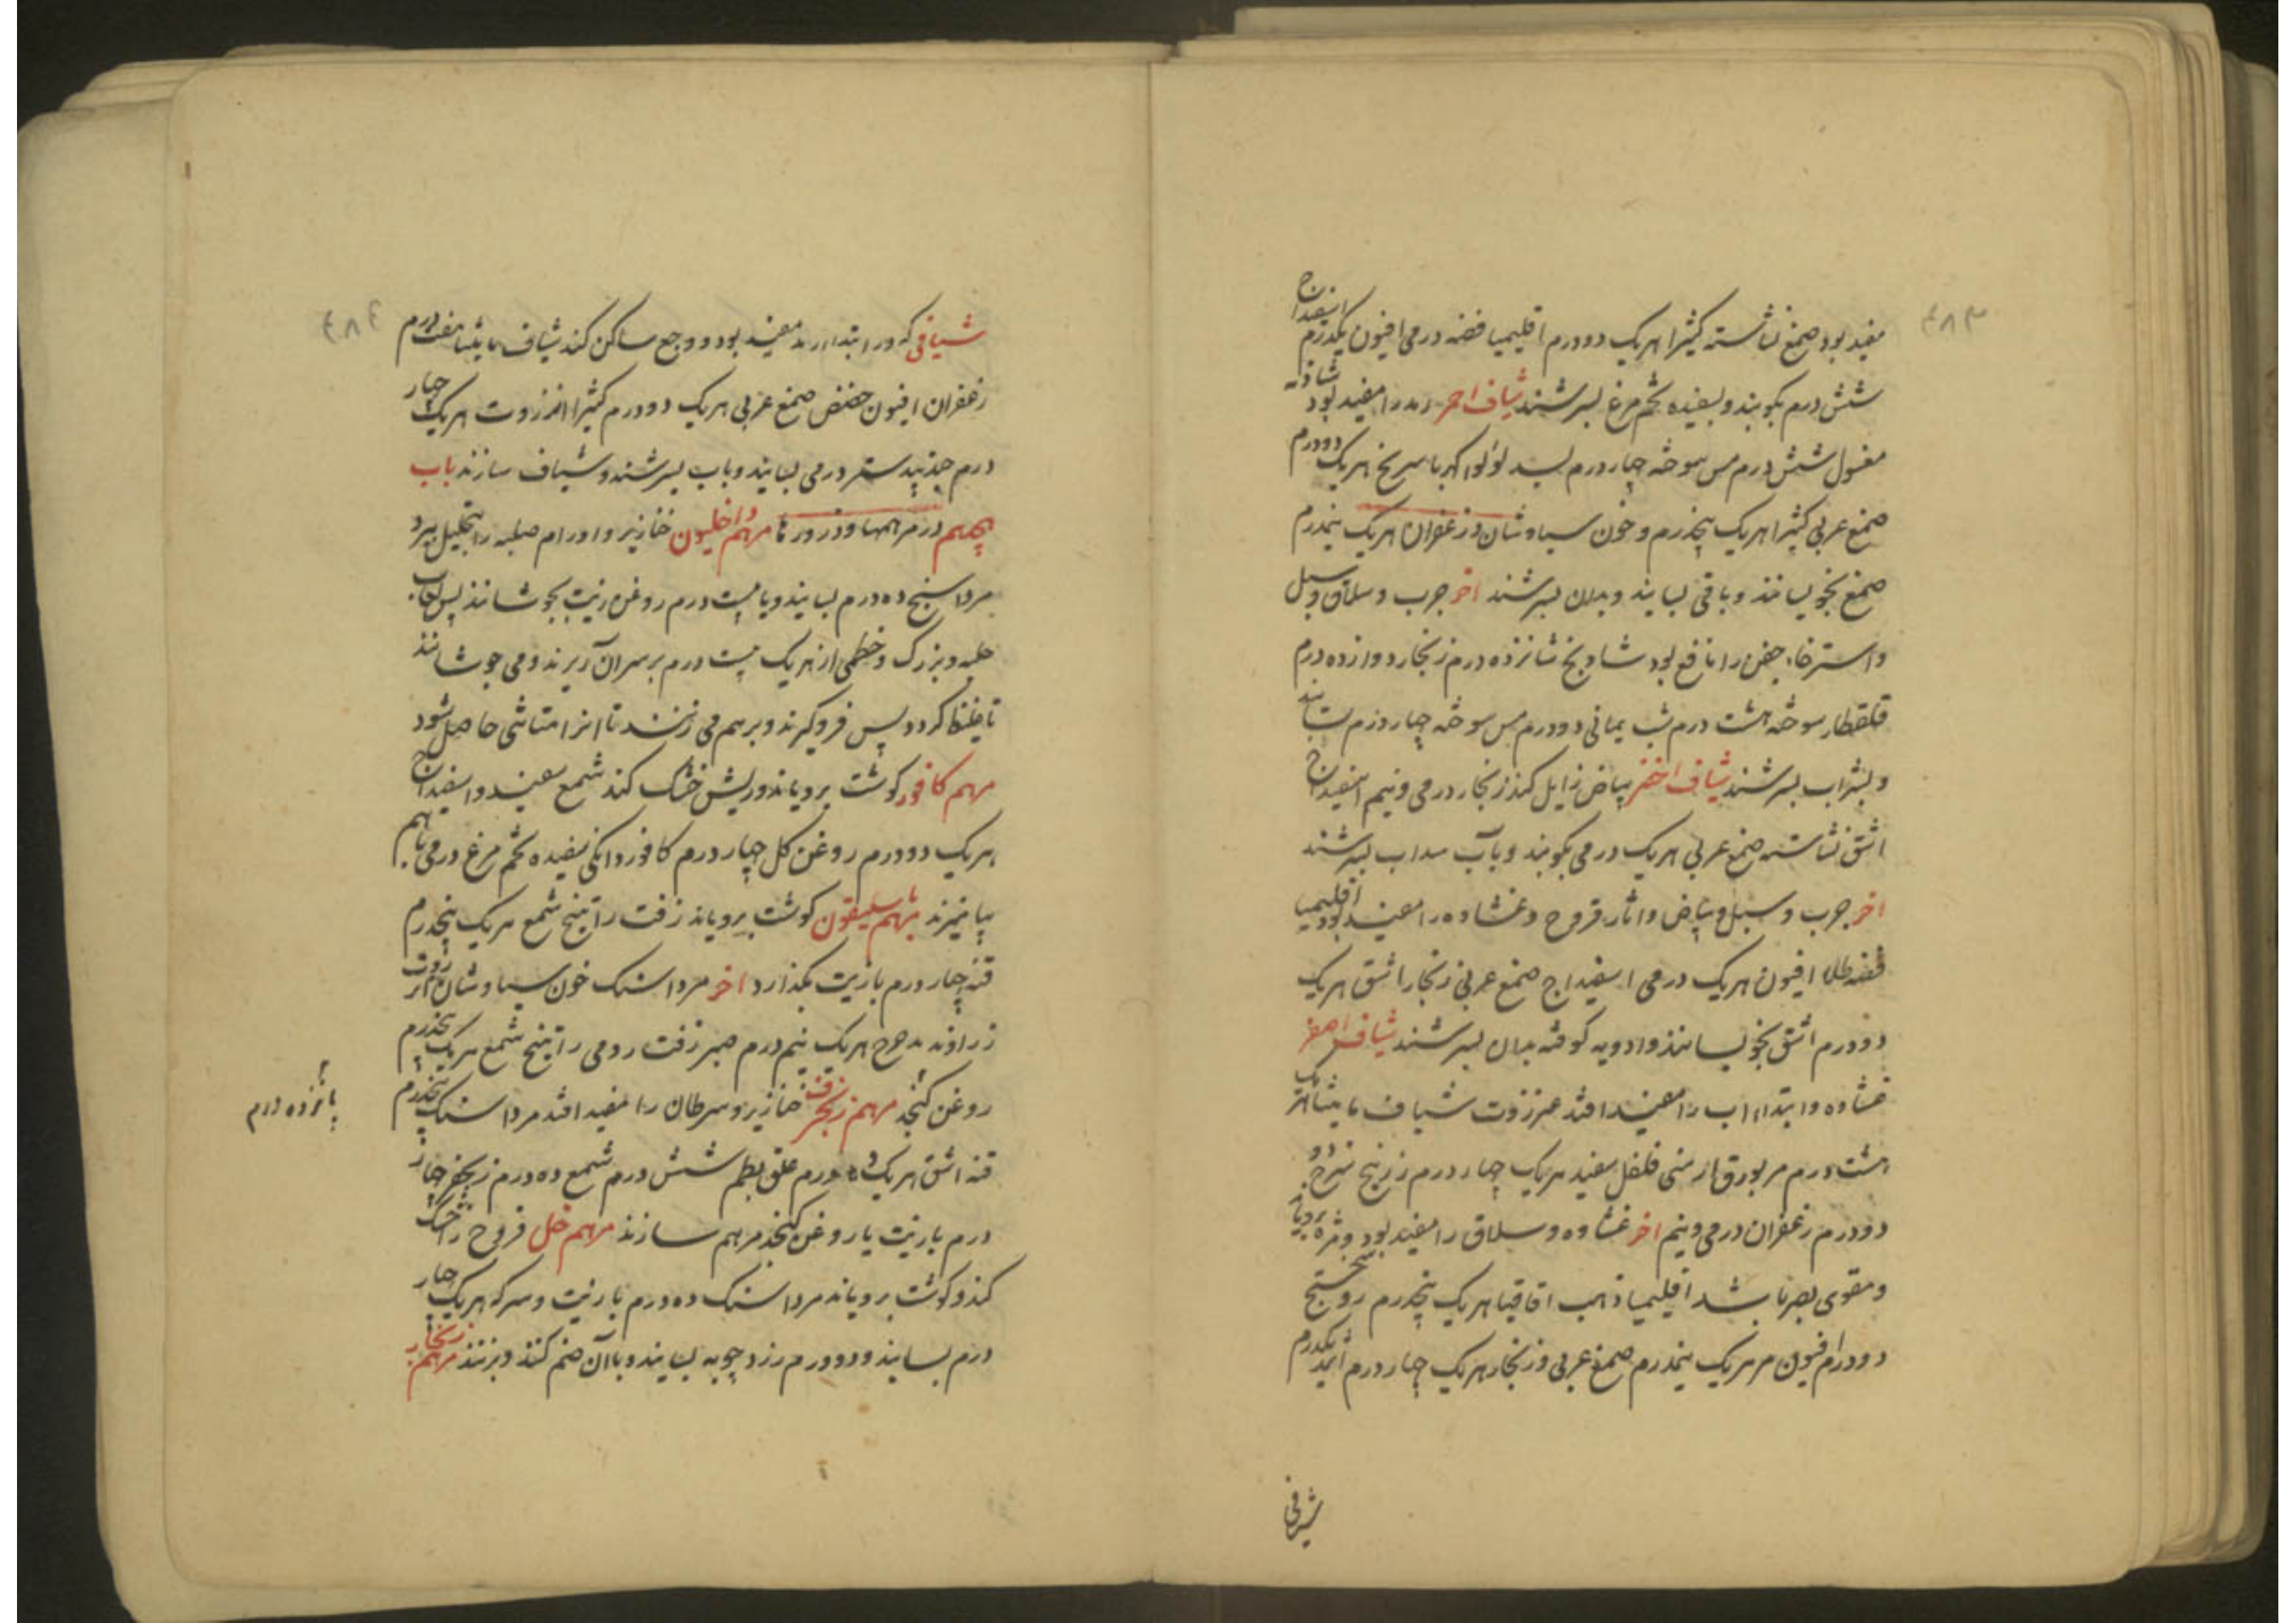 ۴۸۳
مفید بود صمغ نشاسته کثیرا هریک دو درم اقلیمیا فضه درمی افیون یکدرم اسفیداج
شش درم بکوبند و بسفیده تخم مرغ بسرشند شیاف احمر رمد را مفید بود شاذنه
مغسول شش درم مس سوخته چهار درم بسد لؤلؤ کهربا سرنج هریک دودرم
صمغ عربی کثیرا هریک پنجدرم و خون سیاوشان و زعفران هریک نیمدرم
صمغ بخویسانند و باقی بسایند و بدان بسرشند اخر جرب و سلاق و سبل
و استرخاء جفن را نافع بود شادنج شانزده درم زنجار دوازده درم
قلقطار سوخته هشت درم شب یمانی دودرم مس سوخته چهار درم بسایند
و بشراب بسرشند شیاف اخضر بیاض زایل کند زنجار درمی و نیم اسفیداج
اشق نشاسته صمغ عربی هریک درمی بکوبند و بآب سداب بسرشند
اخر جرب و سبل و بیاض و اثار قروح و غشاوه را مفید بود اقلیمیا
فضه طلا افیون هریک درمی اسفیداج صمغ عربی زنجار اشق هریک
دودرم اشق بخویسانند و ادویه کوفته بدان بسرشند شیاف اصفر
غشاوه و ابتداء اب را مفید افتد عنزروت شیاف مامیثا هریک
هشت درم مر بورق ارمنی فلفل سفید هریک چهار درم زرنیخ سرخ
دودرم زعفران درمی و نیم اخر غشاوه و سلاق را مفید بود و مژه برویاند
و مقوی بصر باشد اقلیمیا ذهب اقاقیا هریک پنجدرم روسختج
دودرم افیون مر هریک نیمدرم صمغ عربی و زنجار هریک چهار درم اثمد یکدرم
شیافی
۴۸۴
شیافی که در ابتداء رمد مفید بود و وجع ساکن کند شیاف مامیثا هفت درم
زعفران افیون حضض صمغ عربی هریک دودرم کثیرا انزروت هریک چهار
درم جندبیدستر درمی بسایند و باب بسرشند و شیاف سازند باب
پنجم در مرهمها و ذرورها مرهم داخلیون خنازیر و اورام صلبه را بتحلیل برد
مرداسنج ده درم بسایند و با بیست درم روغن زیت بجوشانند پس لعاب
حلبه و بزرک و خطمی از هریک بیست درم بر سر آن ریزند و می جوشانند
تا غلیظ کردد پس فروکیرند و برهم می زنند تا انرا متانتی حاصل شود
مرهم کافور کوشت برویاند و ریش خشک کند شمع سفید و اسفیداج
هریک دودرم روغن کل چهار درم کافور دانکی سفیده تخم مرغ درمی باهم
بیامیزند مرهم باسلیقون کوشت برویاند زفت راتینج شمع هریک پنجدرم
قنه چهار درم بازیت بکذارد اخر مرداسنک خون سیاوشان انزروت
زراوند مدحرج هریک نیم درم صبر زفت رومی راتینج شمع هریک پنجدرم
روغن کنجد مرهم زنجفر خنازیر و سرطان را مفید افتد مرداسنک پنجدرم
پانزده درم
قنه اشق هریک ده درم علق بطم شش درم شمع ده درم زنجفر چهار
درم بازیت یا روغن کنجد مرهم سازند مرهم خل قروح را خشک
کند و کوشت برویاند مرداسنک ده درم بازیت و سرکه هریک چهار
درم بسایند و دودرم زرد چوبه بسایند و باآن ضم کنند و بزنند مرهم زنجار